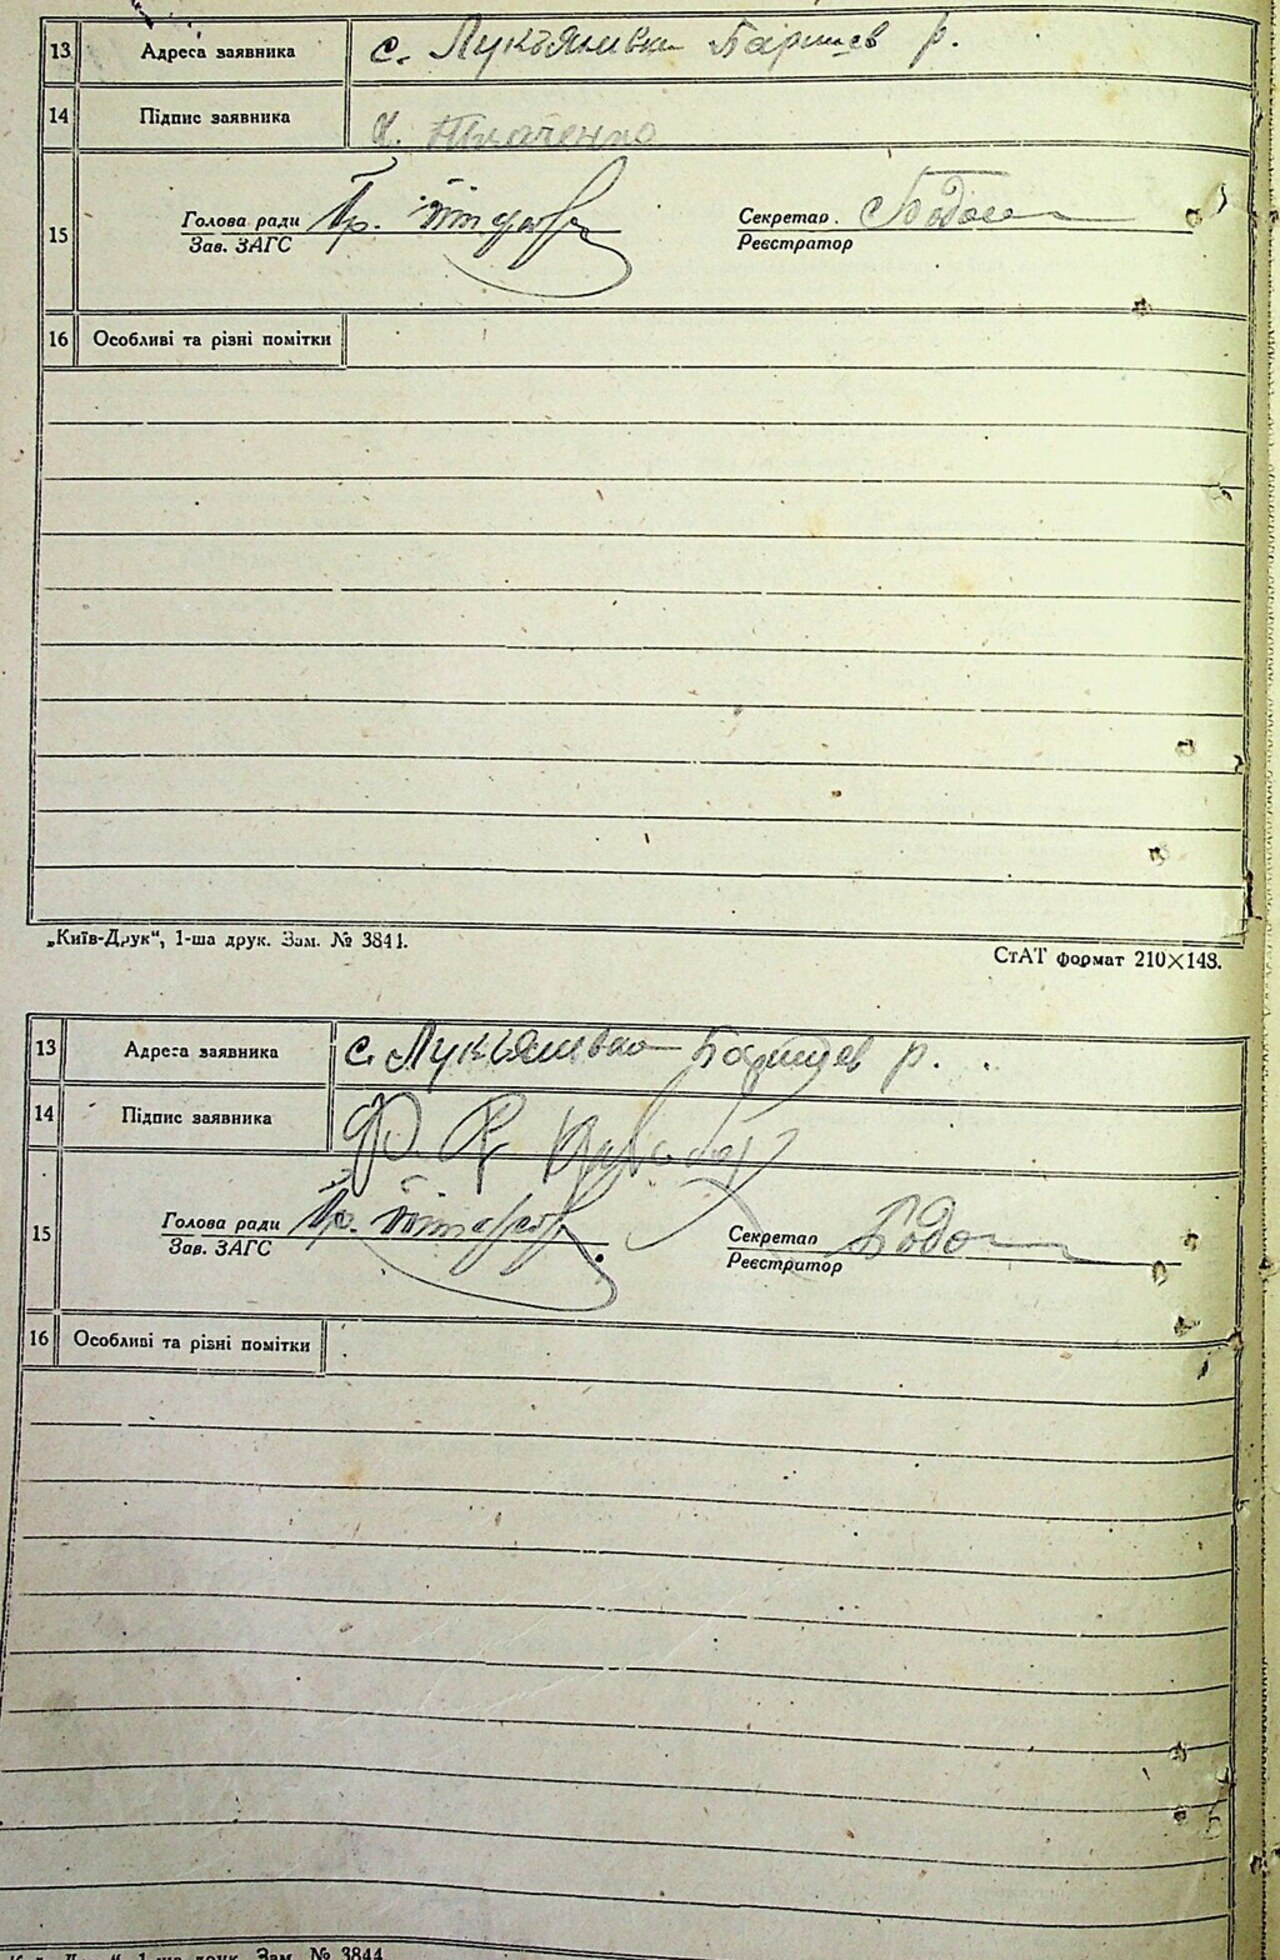 13 Адреса заявника с. Лукъянивка Баришев р.
14 Підпис заявника Ткаченко
15 Голова ради Секретар.
Зав. ЗАГС Реєстратор
16 Особливі та різні помітки
„Київ-Друк“, 1-ша друк. Зам. № 3841.
СтАТ формат 210×148.
13 Адреса заявника с. Лукъянивка Баришев р.
14 Підпис заявника
15 Голова ради Секретар
Зав. ЗАГС Реєстратор
16 Особливі та різні помітки
1-ша друк. Зам. № 3844